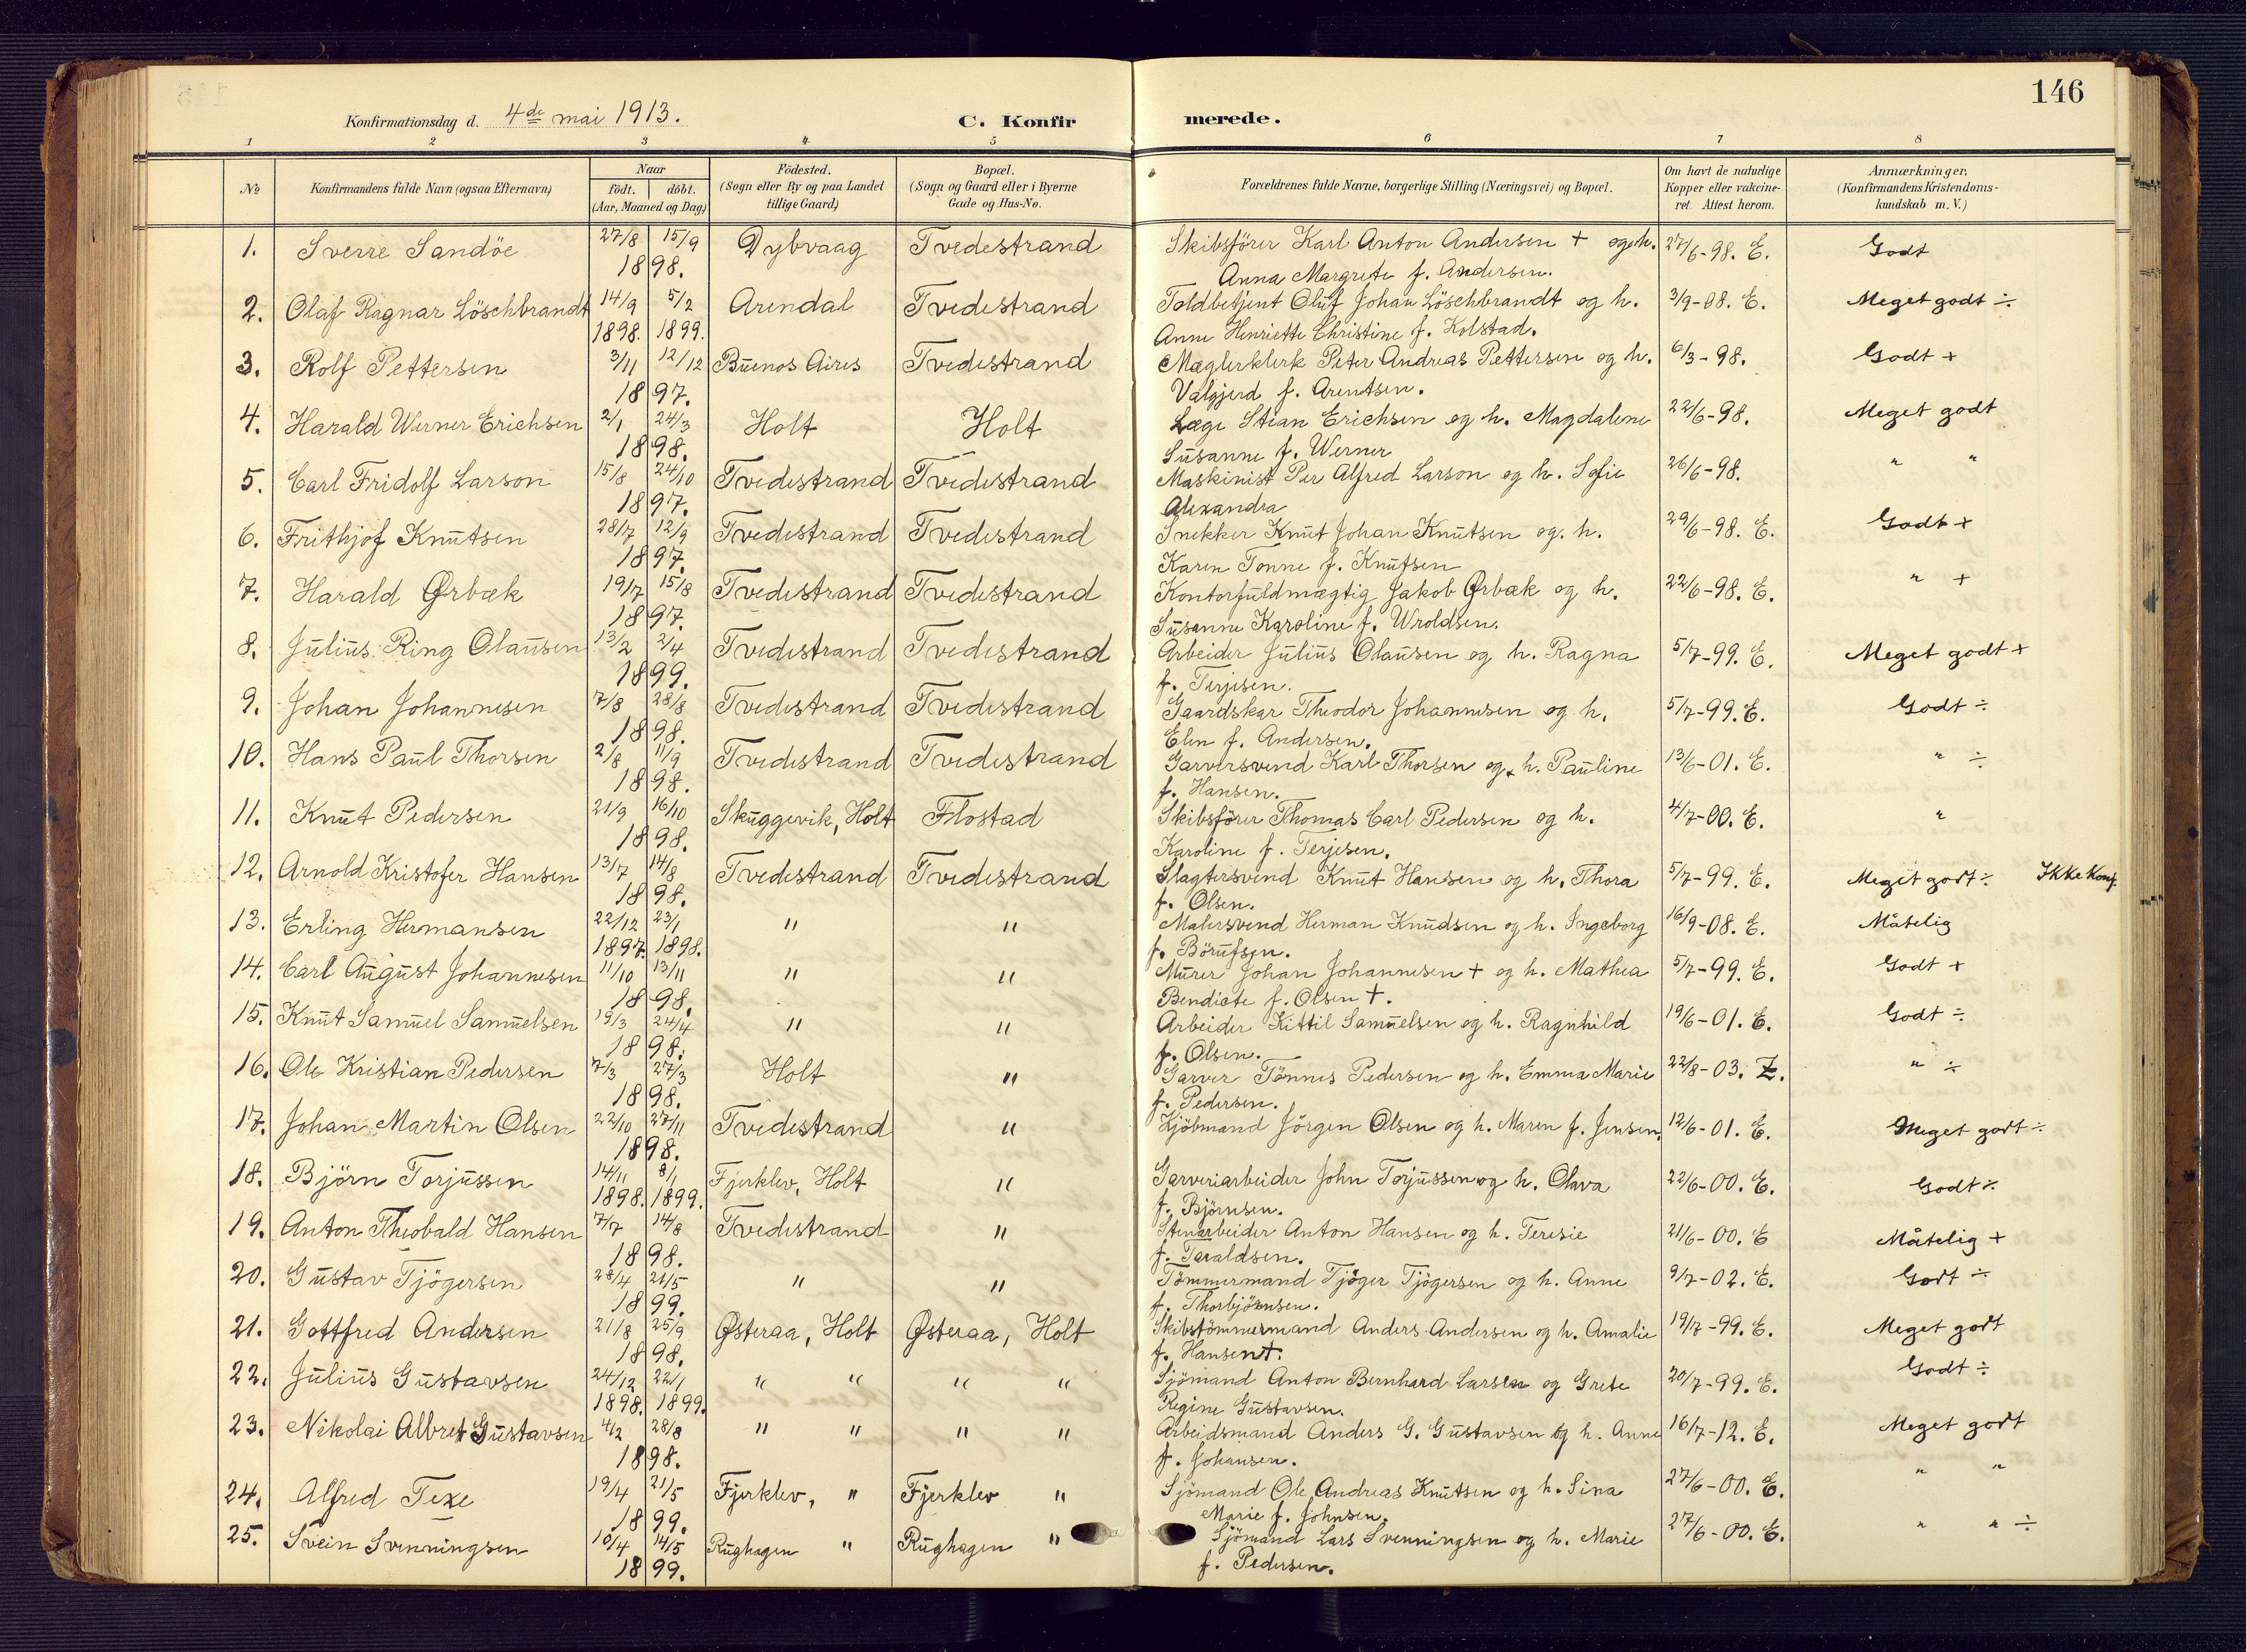 146
Konfirmationsdag d. 4de mai 1913. C. Konfir merede.
1 2 3 4 5 6 7 8
№ Konfirmandens fulde Navn (ogsaa Efternavn) Naar födt. döbt. (Aar, Maaned og Dag) Födested. (Sogn eller By og paa Landet tillige Gaard) Bopæl. (Sogn og Gaard eller i Byerne Gade og Hus-No. Forældrenes fulde Navne, borgerlige Stilling (Næringsvei) og Bopæl. Om havt de naturlige Kopper eller vakcine- ret. Attest herom. Anmærkninger, (Konfirmandens Kristendoms- kundskab m. V.)
1. Sverre Sandöe 27/8 15/9 Dybvaag Tvedestrand Skibsförer Karl Anton Andersen + og h. 27/6-98. E. Godt
1898. Anna Margrete f. Andersen.
2. Olaf Ragnar Löschbrandt 14/9 5/2 Arendal Tvedestrand Toldbetjent Oluf Johan Löschbrandt og h. 3/9-98. E. Meget godt ÷
1898. 1899. Anne Henriette Christine f. Kolstad.
3. Rolf Pettersen 3/11 12/12 Buenos Aires Tvedestrand Mæglerklerk Peter Andreas Pettersen og h. 6/3-98. Godt +
1897. Valgjerd f. Arentsen.
4. Harald Werner Erichsen 2/1 24/3 Holt Holt Læge Stean Erichsen og h. Magdalene 22/6-98. Meget godt
1898. Susanne f. Werner
5. Carl Fridolf Larson 15/8 24/10 Tvedestrand Tvedestrand Maskinist Per Alfred Larson og h. Sofie 26/6-98. " "
1897. Alexandra
6. Frithjof Knutsen 28/7 12/9 Tvedestrand Tvedestrand Snekker Knut Johan Knutsen og. h. 29/6-98. E. Godt +
1897. Karen Tonne f. Knutsen
7. Harald Ørbæk 19/7 15/8 Tvedestrand Tvedestrand Kontorfuldmægtig Jakob Ørbæk og h. 22/6-98. E. " +
1897. Susanne Karoline f. Wroldsen.
8. Julius Ring Olausen 13/2 2/4 Tvedestrand Tvedestrand Arbeider Julius Olausen og h. Ragna 5/7-99. E. Meget godt +
1899. f. Terjesen.
9. Johan Johannesen 7/8 28/8 Tvedestrand Tvedestrand Gaardskar Theodor Johannesen og h. 5/7-99. E. Godt ÷
1898. Elen f. Andersen.
10. Hans Paul Thorsen 2/8 11/9 Tvedestrand Tvedestrand Garversvend Karl Thorsen og h. Pauline 13/6-01. E. " ÷
1898. f. Hansen.
11. Knut Pedersen 21/9 16/10 Skuggevik, Holt Flostad Skibsförer Thomas Carl Pedersen og h. 4/7-00. E. "
1898. Karoline f. Terjesen.
12. Arnold Kristofer Hansen 13/7 14/8 Tvedestrand Tvedestrand Slagtersvend Knut Hansen og h. Thora 5/7-99. E. Meget godt ÷ Ikke Konf.
1898. f. Olsen.
13. Erling Hermansen 22/12 23/1 " " Malersvend Herman Knudsen og h. Ingeborg 16/9-08. E. Måtelig
1897. 1898. f. Börufsen.
14. Carl August Johannesen 11/10 13/11 " " Murer Johan Johannesen + og h. Mathea 5/7-99. E. Godt +
1898. Bendicte f. Olsen +.
15. Knut Samuel Samuelsen 19/3 24/4 " " Arbeider Kittil Samuelsen og h. Ragnhild 19/6-01. E. Godt ÷
1898. f. Olsen.
16. Ole Kristian Pedersen 7/3 27/3 Holt " Garver Tönnes Pedersen og h. Emma Marie 22/8-03. Z. " ÷
1898. f. Pedersen.
17. Johan Martin Olsen 22/10 27/11 Tvedestrand " Kjöbmand Jörgen Olsen og h. Maren f. Jensen. 12/6-01. E. Meget godt ÷
1898.
18. Björn Torjussen 14/11 8/1 Fjerklev, Holt " Garveriarbeider John Torjussen og h. Olava 22/6-00. E. Godt ÷
1898. 1899. f. Björnsen.
19. Anton Theobald Hansen 7/7 14/8 Tvedestrand " Stenarbeider Anton Hansen og h. Teresie 21/6-00. E Måtelig +
1898. f. Taraldsen.
20. Gustav Tjögersen 28/4 21/5 " " Tömmermand Tjöger Tjögersen og h. Anne 9/7-02. E. Godt ÷
1899. f. Thorbjörnsen.
21. Gottfred Andersen 21/8 25/9 Østeraa, Holt Østeraa, Holt Skibstömmermand Anders Andersen og h. Amalie 19/7-99. E. Meget godt
1898. f. Hansen +.
22. Julius Gustavsen 24/12 22/1 " " " " Sjömand Anton Bernhard Larsen og Grete 20/7-99. E. Godt ÷
1898. 1899. Regine Gustavsen.
23. Nikolai Albret Gustavsen 4/2 28/8 " " " " Arbeidsmand Anders G. Gustavsen og h. Anne 16/7-12. E. Meget godt
1898. f. Johansen.
24. Alfred Texe 19/4 21/5 Fjerklev, " Fjerklev " Sjömand Ole Andreas Knutsen og h. Sina 27/6-00. E. " "
1899. Marie f. Johnsen.
25. Svein Svenningsen 10/4 14/5 Rughagen " Rughagen " Sjömand Lars Svenningsen og h. Marie 27/6-00. E. " " ÷
1899. f. Pedersen.